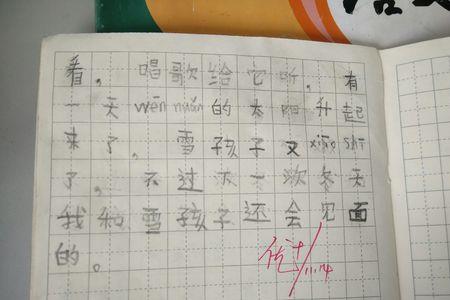 看，唱歌给它听，有
一天wēn nuǎn的太阳升起
来了，雪孩子又xiāo shī
了，不过下一次冬天
我和雪孩子还会见面
的。
优+